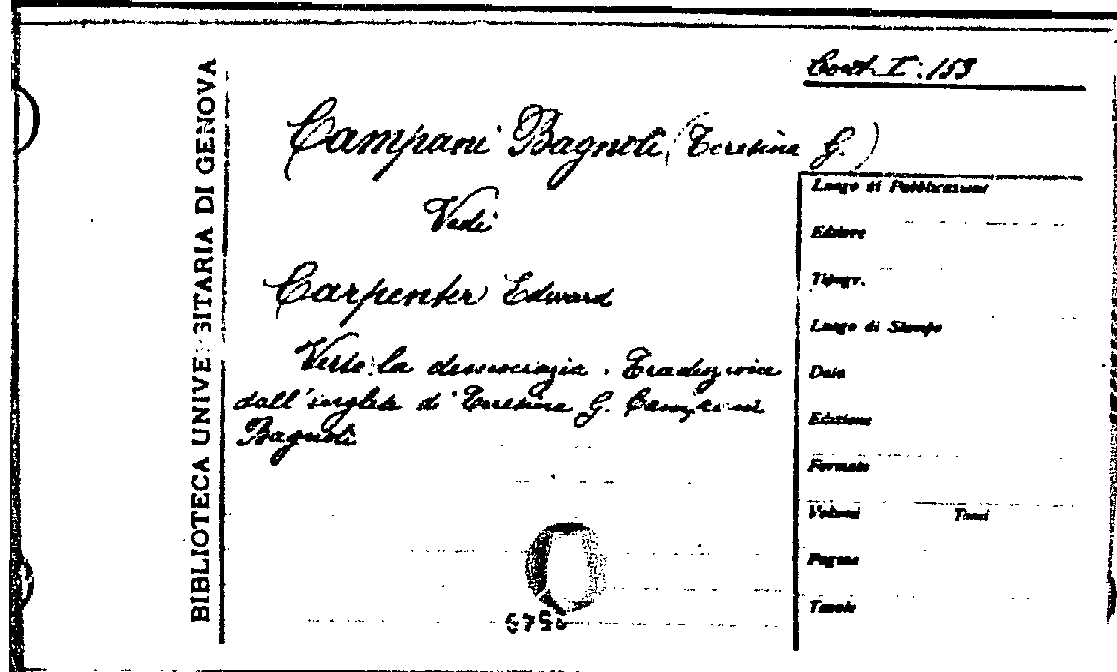 BIBLIOTECA UNIVERSITARIA DI GENOVA
Cont. I. 153
Campani Bagnoli (Teresina G.)
Vedi
Carpenter Edward
Verso la democrazia. Traduzione
dall'inglese di Teresina G. Campani
Bagnoli
Luogo di Pubblicazione
Editore
Tipogr.
Luogo di Stampa
Data
Edizione
Formato
Volumi Tomi
Pagine
Tavole